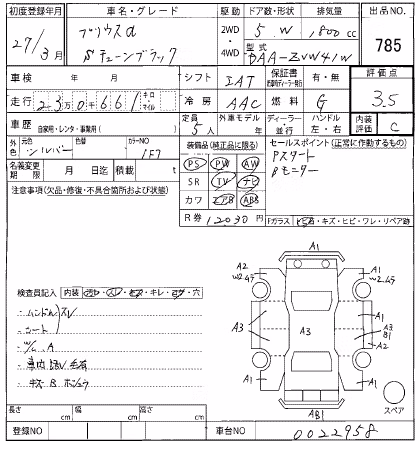 初度登録年月 車名・グレード 駆動 ドア数・形状 排気量 出品NO.
27/3月 プリウスα Sチューンブラック 2WD・4WD 5 W 1800cc 785
型式 DAA-ZVW41W
車検 年 月 シフト IAT 保証書 有・無 評価点
走行 23万0千661 キロ マイル 冷房 AAC 燃料 G 3.5
車歴 自家用・レンタ・事業用( ) 定員 5人 外車モデル年 ディーラー 並行 ハンドル 左・右 内装評価 C
外色 元色 シルバー 色替 カラーNO 1F7 装備品(純正品に限る) セールスポイント(正常に作動するもの)
名義変更期限 月 日迄 積載 t PS PW AW Pスタート
注意事項(欠品・修復・不具合箇所および状態) SR TV ナビ Bモニター
カワ エアB ABS
R券 12030円 Fガラス トビ石・キズ・ヒビ・ワレ・リペア跡
検査員記入 内装
ハンドルスレ
シート
W/L .A
キズ B
A1
A2 A1
W2.ｻﾌ W2.ｻﾌ
A1 A1
A3 A3 A3
B1
A2
A1 A1
AB1 スペア
長さ cm 幅 cm 高さ cm
登録NO 車台NO 0022958